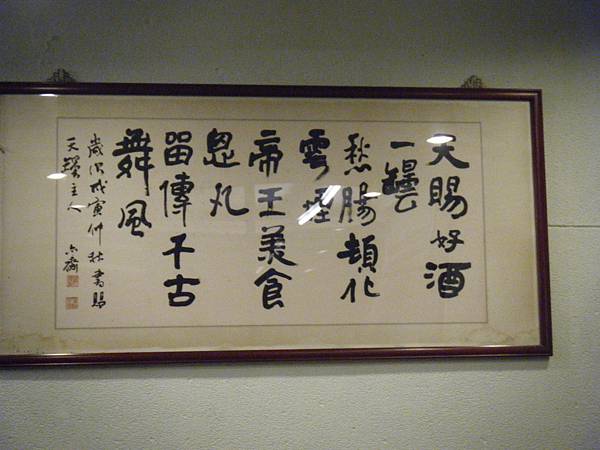 天賜好酒
一罎
愁腸頓化
雲煙
帝王美食
思丸
留傳千古
舞風
歲次戊寅仲秋書賜
天罎主人